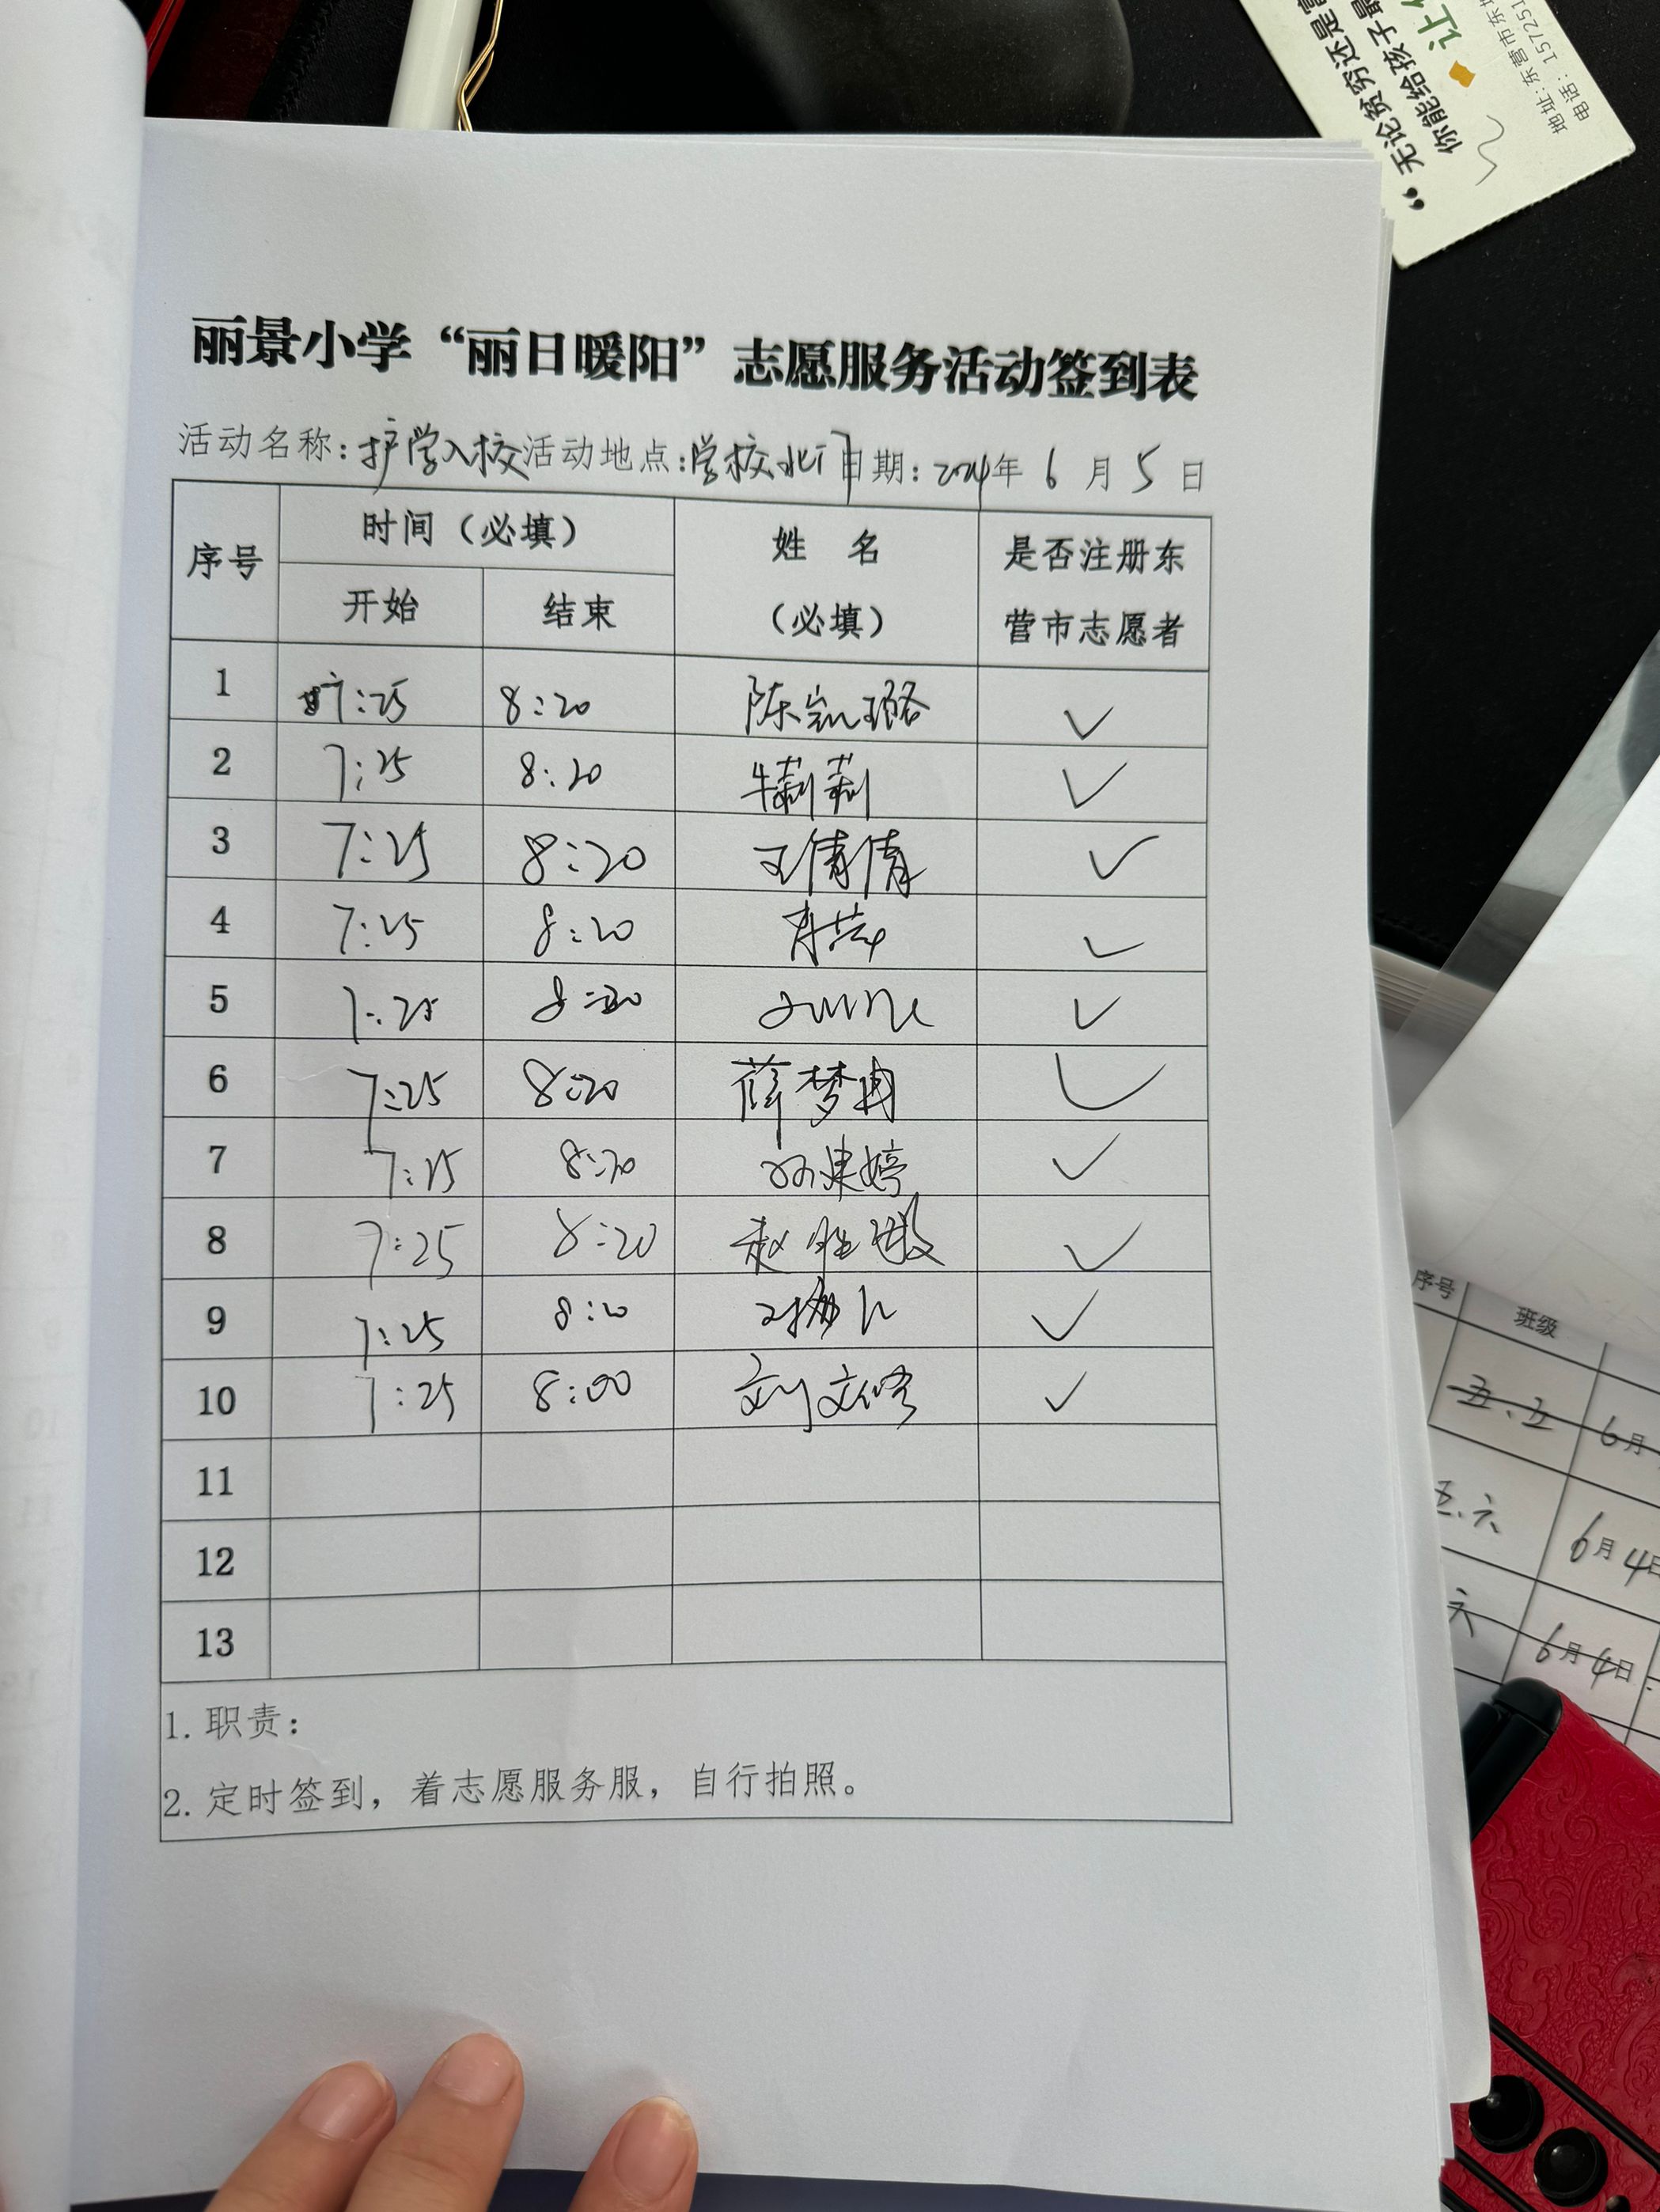 丽景小学“丽日暖阳”志愿服务活动签到表
活动名称：护学入校 活动地点：学校北门 日期：2024年 6 月 5 日
序号 时间（必填） 姓 名（必填） 是否注册东营市志愿者
开始 结束
1 7:25 8:20 陈凯璐 ✓
2 7:25 8:20 牛莉莉 ✓
3 7:25 8:20 王倩倩 ✓
4 7:25 8:20 ✓
5 7:25 8:20 ✓
6 7:25 8:20 薛梦冉 ✓
7 7:25 8:20 孙建婷 ✓
8 7:25 8:20 赵 ✓
9 7:25 8:20 ✓
10 7:25 8:00 刘文修 ✓
11
12
13
1. 职责：
2. 定时签到，着志愿服务服，自行拍照。
“无论贫穷还是富
你能给孩子最
让
地址：东营市东
电话：157251
序号 班级
五、五 6月
五、六 6月4日
六 6月4日